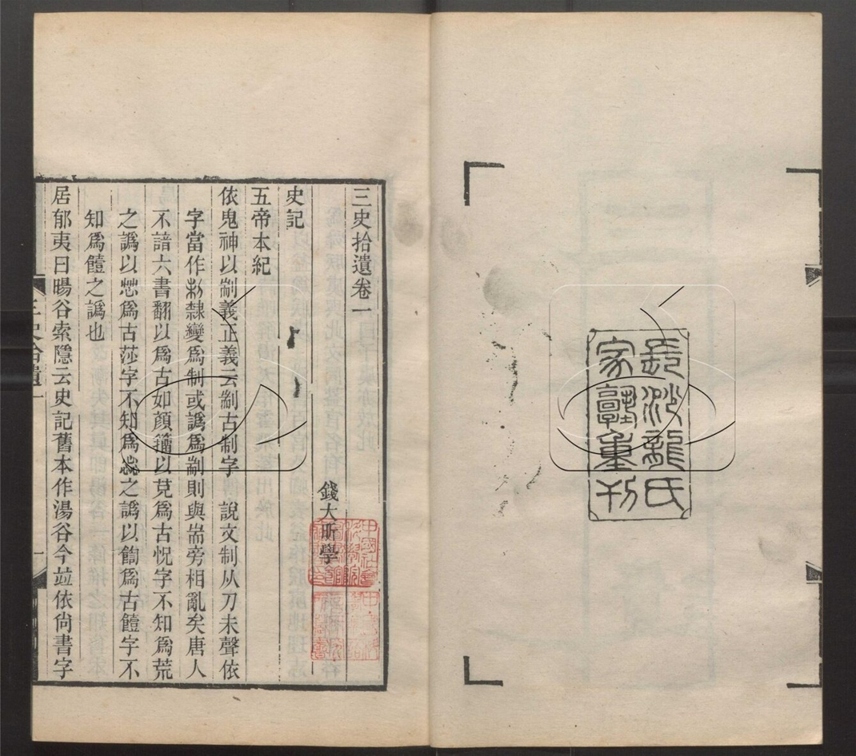 長沙龍氏
家塾重刊
三史拾遺卷一
錢大昕學
史記
五帝本紀
依鬼神以制義正義云制古制字 說文制从刀未聲依
字當作𠛐隸變爲制或譌爲剬則與耑旁相亂矣唐人
不諳六書翻以爲古如顔籒以㠩爲古怳字不知爲荒
之譌以爲古莎字不知爲之譌以爲古饐字不
知爲饐之譌也
居郁夷曰暘谷索隱云史記舊本作湯谷今竝依尙書字
三史拾遺一